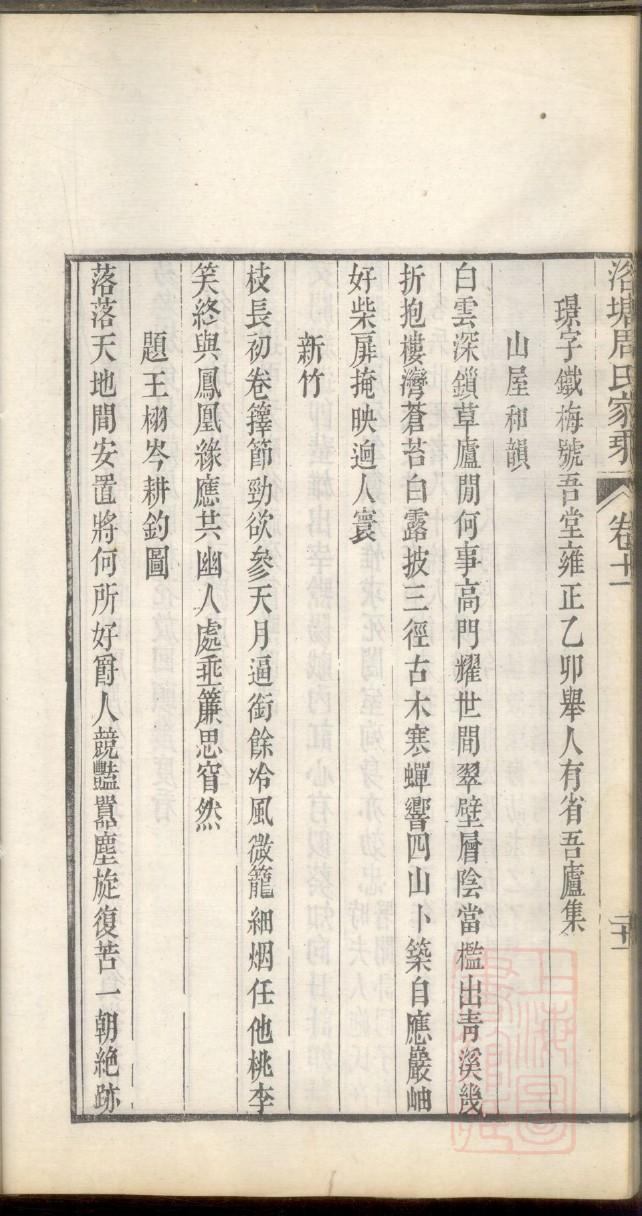 洛塘周氏家乘 卷十一
璟字鐵梅號吾堂雍正乙卯舉人有省吾廬集
山屋和韻
白雲深鎖草廬閒何事高門耀世間翠壁層陰當檻出青溪幾
折抱樓灣蒼苔白露披三徑古木寒蟬響四山卜築自應巖岫
好柴扉掩映迥人寰
新竹
枝長初卷籜節勁欲參天月逼銜餘冷風微籠細烟任他桃李
笑終與鳳凰緣應共幽人處垂簾思窅然
題王栩岑耕釣圖
落落天地間安置將何所好爵人競豔囂塵旋復苦一朝絶跡